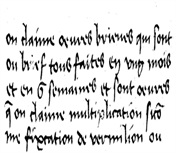 on claime oeuvres brieves qui sont
ou brief tous faites en ung mois
et en 6 semaines et sont oeuvres
q̄ on claime multiplication
de vermilion ou